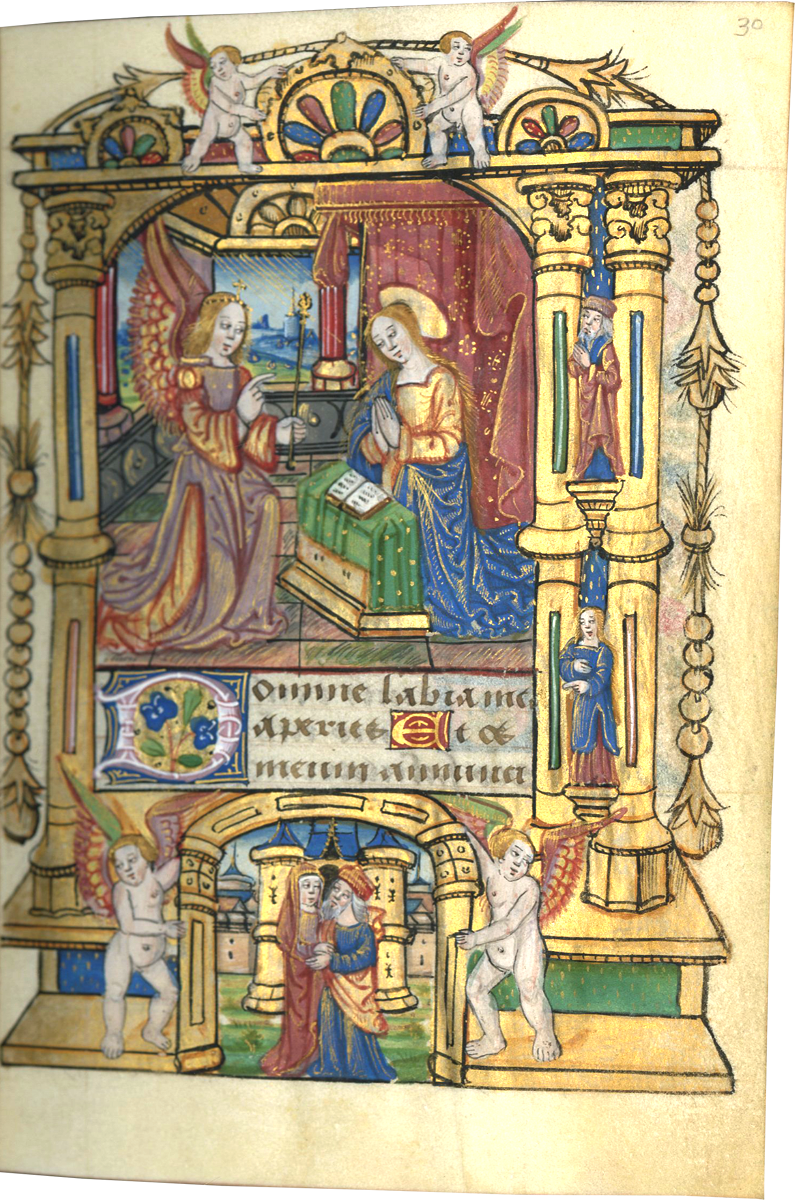 30
Domine labia me
aperies Et os
meum annunci